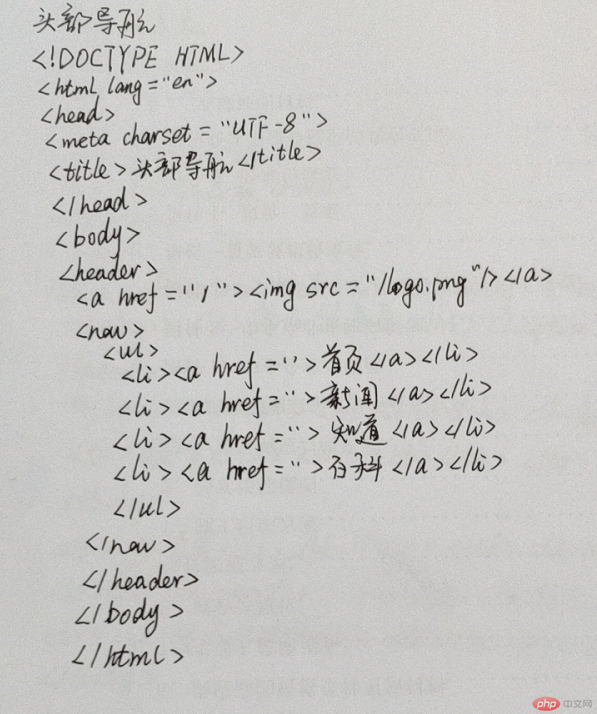 头部导航
<!DOCTYPE HTML>
<html lang="en">
<head>
<meta charset="UTF-8">
<title>头部导航</title>
</head>
<body>
<header>
<a href="/"><img src="/logo.png"/></a>
<nav>
<ul>
<li><a href=''>首页</a></li>
<li><a href=''>新闻</a></li>
<li><a href=''>知道</a></li>
<li><a href=''>百科</a></li>
</ul>
</nav>
</header>
</body>
</html>
php 中文网